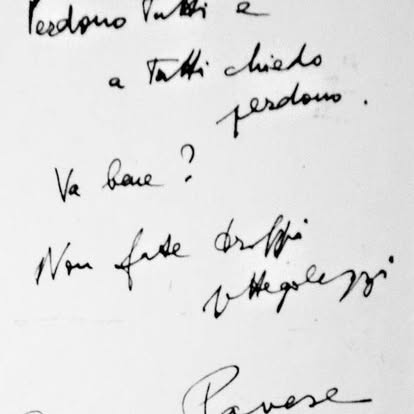 Perdono tutti e
a tutti chiedo
perdono.
Va bene?
Non fate troppi
pettegolezzi
Pavese